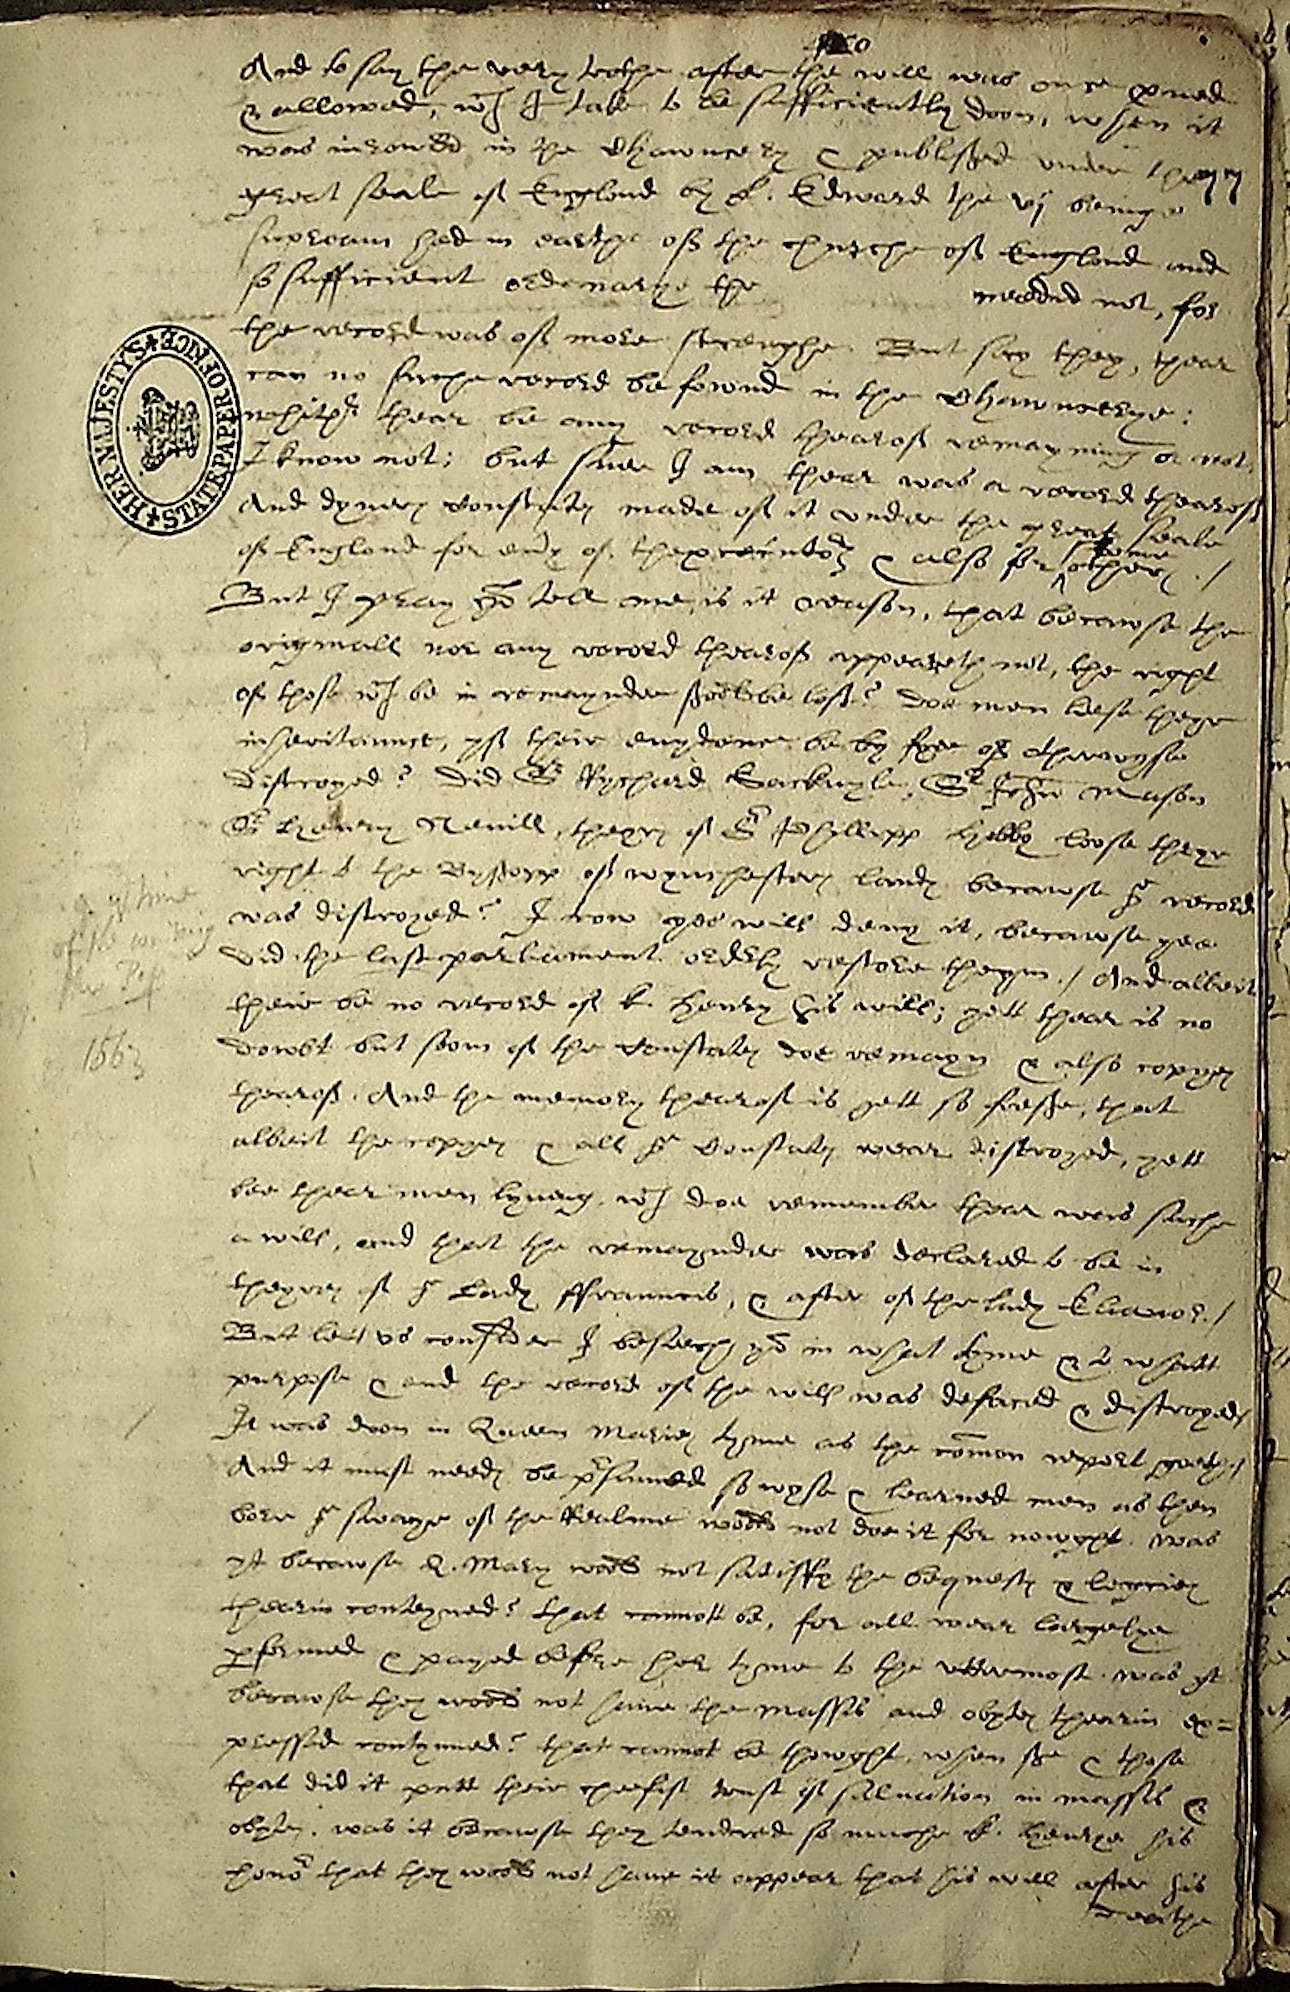 And to say the very trothe after the will was once proved
& allowed, wch I take to be sufficiently doon, when it
was inrowled in the Chawncery & publisshed under the
77
great seale of England by K. Edward the vj being
supream hed in earthe off the Churche off England and
so sufficient ordenarye the needed not, for
the record was off more strengthe. But say they, thear
can no suche record be fownd in the Chawncerye:
whithr thear be any record thearoff remayning or not,
I know not; but suer I am thear was a record thearoff
And dyvers constates made off it under the great seale
off England for eny of the executors & also for some others ./
But I pray yow tell me, is it reason, that becawse the
originall nor any record thearoff appeareth not, the right
off those wch be in remaynder shold be lost? doe men leese theyr
inheritaunce, yff their evydence be by fyer or otherwyse
distroyed? did Sr Rychard Sackvyle, Sr John Mason
Sr Henry Nevill, theyrs of Sr Phillipp Hobby loose theyr
right to the Bysshopp off wynchesters lands becawse ye record
was distroyed? I trow yee will deny it, becawse yee
did the last parliament orderly restore theym ./ And albeit
their be no record of K. Henry his will; yett thear is no
dowbt but soom of the constates doe remayn & also copyes
thearoff. And the memory thearoff is yett so fresshe, that
albeit the copyes & all ye constates wear distroyed, yett
bee thear men lyving, wch doe remember thear was suche
a will, and that the remaynder was declared to be in
theyres of ye Lady ffraunces, & after off the lady Elianor ./
But lett us consider I beseech yow in what tyme & to whatt
purpose & end the record off the will was defaced & distroyed
It was doon in Queen Maries tyme as the comon report goeth ./
And it must needs be presumed so wyse & learned men as then
bore ye swaye of the Realme wold not doe it for nowght. was
yt becawse Q. Mary wold not satisffy the bequests & legacies
thearin conteyned? that cannott be, for all wear largelye
performed & payed before her tyme to the uttermost. was yt
becawse they wold not have the masses and obytes thearin ex=
pressed contynued? that cannot be thowght, when she & those
that did it putt their cheefist trust of salvation in masses &
obytes. was it becawse they tendred so muche K. Henrye his
honor that they wold not have it appear that his will after his
Deathe
tyme
of the writing
1563
HER MAJESTY'S STATE PAPER OFFICE